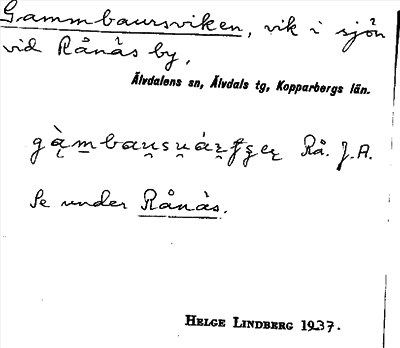 Gammbaursviken, vik i sjön
vid Rånäs by,
Älvdalens sn, Älvdals tg, Kopparbergs län.
Rå. J.A.
Se under Rånäs.
HELGE LINDBERG 1937.